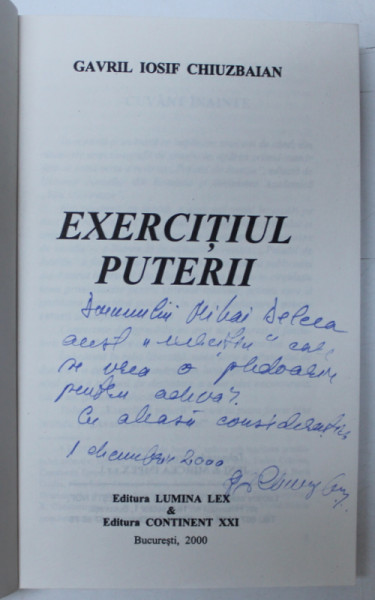 GAVRIL IOSIF CHIUZBAIAN
EXERCIȚIUL
PUTERII
Domnului Mihai Delcea
acest „exercițiu" care
se vrea o pledoarie
pentru adevăr.
Cu aleasă considerație
1 decembrie 2000
Editura LUMINA LEX
&
Editura CONTINENT XXI
București, 2000